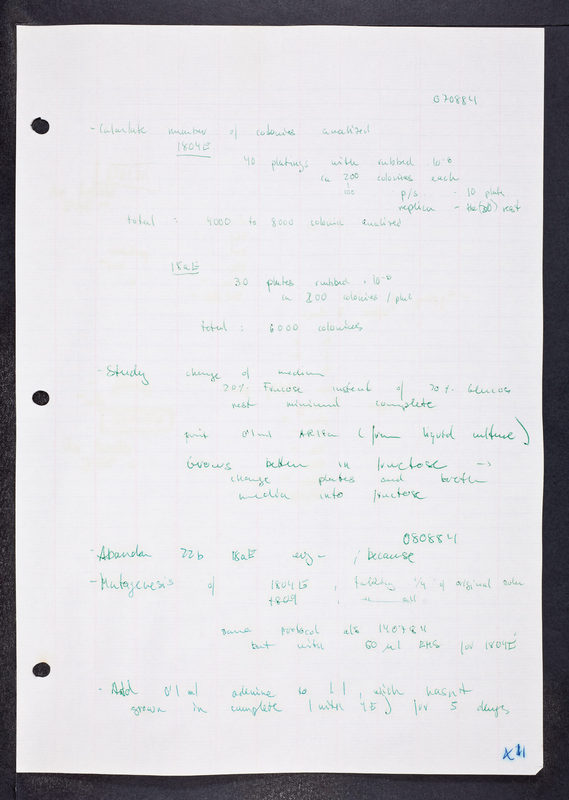 070884
- Calculate number of colonies analized
1804E
40 platings with rubbed 10-0
ca 200 colonies each
100 p/s - 10 plate
replica - the rest
total : 4000 to 8000 colonies analized
18aE
30 plates rubbed
ca 200 colonies / plate
total : 6000 colonies
- Study change of medium
20% Fructose instead of 20% Glucos
rest minimal complete
0'1 ml (from liquid culture)
Grows better in fructose ->
change plates and broth
media into fructose
080884
- Abandon 22b 18aE , because
- Mutagenesis of 1804E , taking 1/4 of original
1809 , all
same protocol als 140784
but with 60 µl EMS for 1804E
- Add 0'1 ml adenine to , which hasnt
grown in complete (with YE) for 5 days